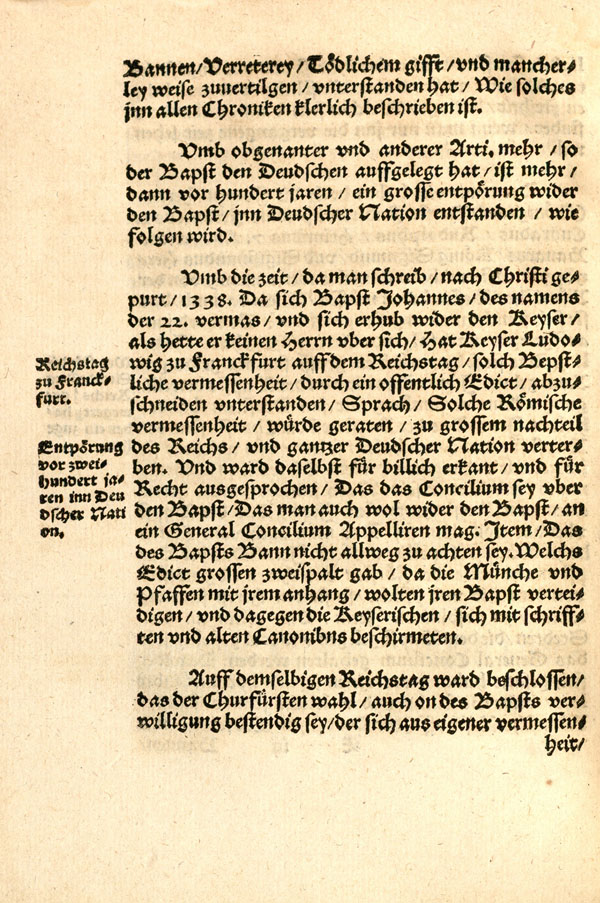 Bannen/Verreterey/Tödlichem gifft/vnd mancher=
ley weise zuuertilgen/vnterstanden hat/Wie solches
jnn allen Chroniken klerlich beschrieben ist.
Vmb obgenanter vnd anderer Arti. mehr/so
der Bapst den Deudschen auffgelegt hat/ist mehr/
dann vor hundert jaren/ein grosse entpörung wider
den Bapst/jnn Deudscher Nation entstanden/wie
folgen wird.
Vmb die zeit/da man schreib/nach Christi ge=
purt/1338. Da sich Bapst Johannes/des namens
der 22. vermas/vnd sich erhub wider den Keyser/
als hette er keinen Herrn vber sich/Hat Keyser Ludo=
wig zu Franckfurt auff dem Reichstag/solch Bepst=
liche vermessenheit/durch ein offentlich Edict/abzu=
schneiden vnterstanden/Sprach/Solche Römische
vermessenheit/würde geraten/zu grossem nachteil
des Reichs/vnd gantzer Deudscher Nation verter=
ben. Vnd ward daselbst für billich erkant/vnd für
Recht ausgesprochen/Das das Concilium sey vber
den Bapst/Das man auch wol wider den Bapst/an
ein General Concilium Appelliren mag. Item/Das
des Bapsts Bann nicht allweg zu achten sey. Welchs
Edict grossen zweispalt gab/da die Münche vnd
Pfaffen mit jrem anhang/wolten jren Bapst vertei=
digen/vnd dagegen die Keyserischen/sich mit schriff=
ten vnd alten Canonibns beschirmeten.
Auff demselbigen Reichstag ward beschlossen/
das der Churfürsten wahl/auch on des Bapsts ver=
willigung bestendig sey/der sich aus eigener vermessen=
heit/
Reichstag
zu Franck=
furt.
Entpörung
vor zwei=
hundert ja=
ren inn Deu
dscher Nati
on.